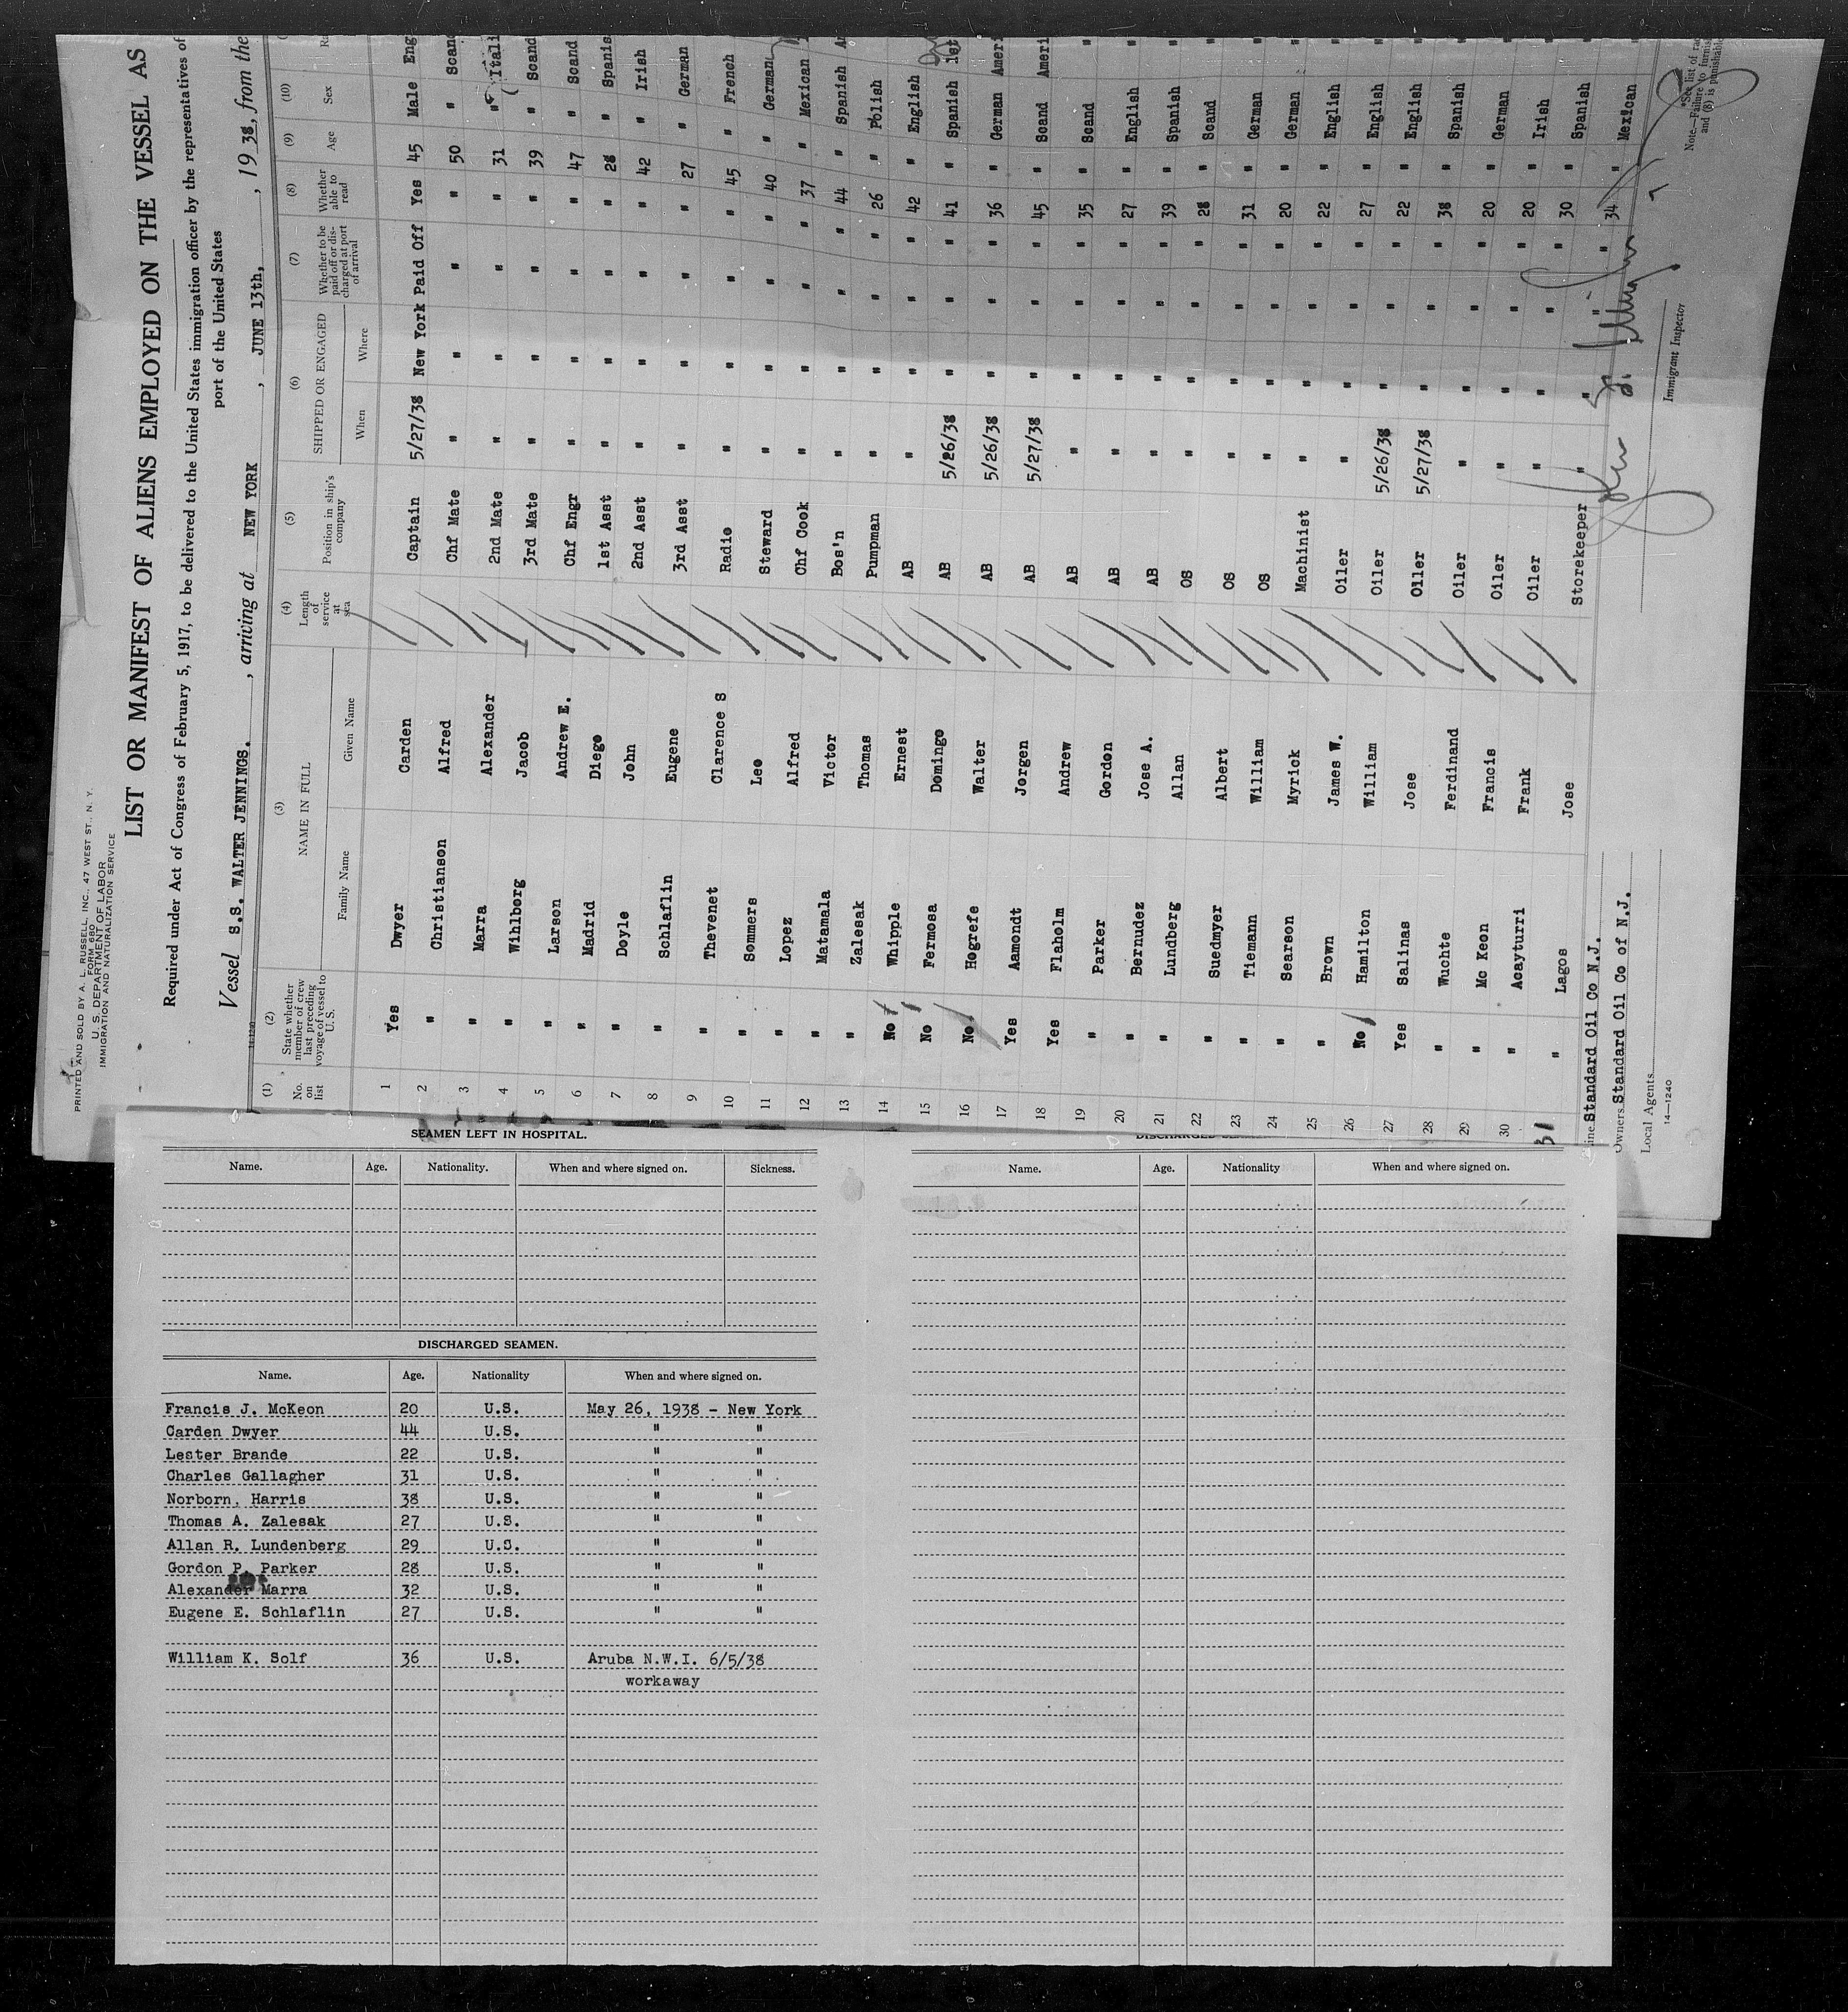 PRINTED AND SOLD BY A. L. RUSSELL, INC., 47 WEST ST., N. Y.
FORM 680
U. S. DEPARTMENT OF LABOR
IMMIGRATION AND NATURALIZATION SERVICE
LIST OR MANIFEST OF ALIENS EMPLOYED ON THE VESSEL AS
Required under Act of Congress of February 5, 1917, to be delivered to the United States immigration officer by the representatives of
port of the United States
Vessel S.S. WALTER JENNINGS. , arriving at NEW YORK , JUNE 13th, , 19 38, from the
(1) (2) (3) (4) (5) (6) (7) (8) (9) (10)
No. on list
State whether member of crew last preceding voyage of vessel to U. S.
NAME IN FULL
Family Name Given Name
Length of service at sea
Position in ship's company
SHIPPED OR ENGAGED
When Where
Whether to be paid off or discharged at port of arrival
Whether able to read
Age
Sex
1 Yes Dwyer Carden Captain 5/27/38 New York Paid Off Yes 45 Male Eng
2 " Christianson Alfred Chf Mate " " " " 50 " Scand
3 " Marra Alexander 2nd Mate " " " " 31 " Itali
4 " Wihlborg Jacob 3rd Mate " " " " 39 " Scand
5 " Larson Andrew E. Chf Engr " " " " 47 " Scand
6 " Madrid Diego 1st Asst " " " " 28 " Spanis
7 " Doyle John 2nd Asst " " " " 42 " Irish
8 " Schlaflin Eugene 3rd Asst " " " " 27 " German
9 " Thevenet Clarence S Radio " " " " 45 " French
10 " Sommers Leo Steward " " " " 40 " German
11 " Lopez Alfred Chf Cook " " " " 37 " Mexican
12 " Matamala Victor Bos'n " " " " 44 " Spanish
13 " Zalesak Thomas Pumpman " " " " 26 " Polish
14 No Whipple Ernest AB " " " " 42 " English
15 No Fermosa Domingo AB 5/26/38 " " " 41 " Spanish 1st
16 No Hogrefe Walter AB 5/26/38 " " " 36 " German Ameri
17 Yes Aamondt Jorgen AB 5/27/38 " " " 45 " Scand Ameri
18 Yes Flaholm Andrew AB " " " " 35 " Scand "
19 " Parker Gordon AB " " " " 27 " English "
20 " Bernudez Jose A. AB " " " " 39 " Spanish "
21 " Lundberg Allan OS " " " " 28 " Scand "
22 " Suedmyer Albert OS " " " " 31 " German "
23 " Tiemann William OS " " " " 20 " German "
24 " Searson Myrick Machinist " " " " 22 " English "
25 " Brown James W. Oiler " " " " 27 " English "
26 No Hamilton William Oiler 5/26/38 " " " 22 " English "
27 Yes Salinas Jose Oiler 5/27/38 " " " 38 " Spanish "
28 " Wuchte Ferdinand Oiler " " " " 20 " German "
29 " Mc Keon Francis Oiler " " " " 20 " Irish "
30 " Acayturri Frank Oiler " " " " 30 " Spanish "
31 " Lagos Jose Storekeeper " " " " 34 " Mexican "
Line Standard Oil Co N.J.
Owners Standard Oil Co of N.J.
Local Agents
Immigrant Inspector
14—1240
*See list of
Note—Failure to furnish
and (8) is punishable
SEAMEN LEFT IN HOSPITAL.
Name. Age. Nationality. When and where signed on. Sickness.
DISCHARGED SEAMEN.
Name. Age. Nationality When and where signed on.
Francis J. McKeon 20 U.S. May 26, 1938 - New York
Carden Dwyer 44 U.S. " "
Lester Brande 22 U.S. " "
Charles Gallagher 31 U.S. " "
Norborn. Harris 38 U.S. " "
Thomas A. Zalesak 27 U.S. " "
Allan R. Lundenberg 29 U.S. " "
Gordon P. Parker 28 U.S. " "
Alexander Marra 32 U.S. " "
Eugene E. Schlaflin 27 U.S. " "
William K. Solf 36 U.S. Aruba N.W.I. 6/5/38
workaway
DISCHARGED SEAMEN
Name. Age. Nationality When and where signed on.